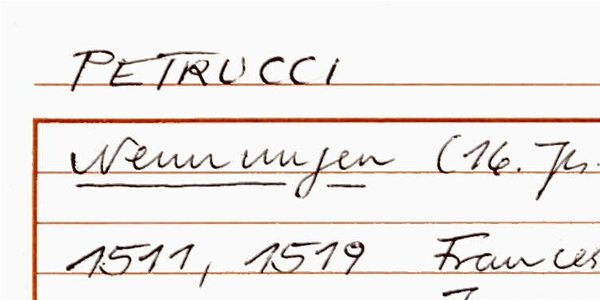 PETRUCCI
Nennungen (16. Jh.
1511, 1519 Frances